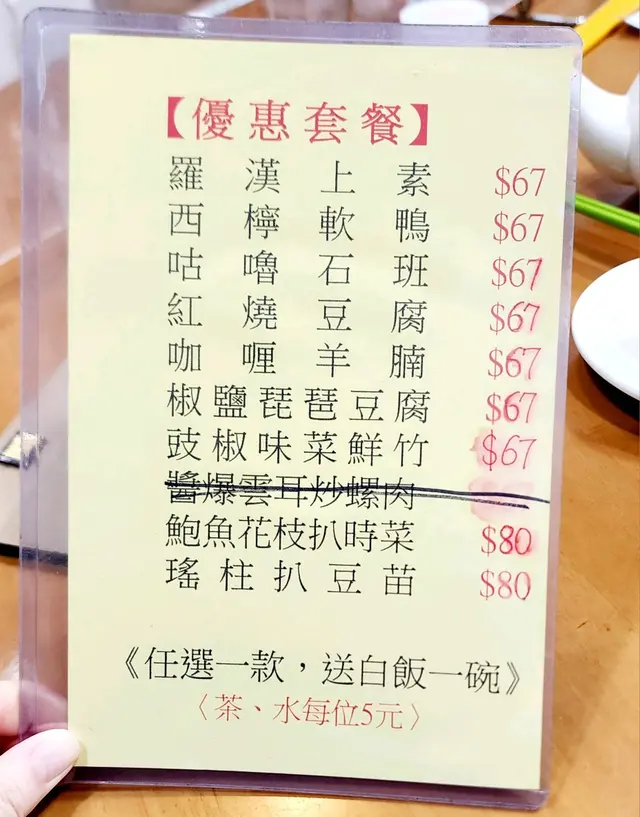 【優惠套餐】
羅漢上素 $67
西檸軟鴨 $67
咕嚕石班 $67
紅燒豆腐 $67
咖喱羊腩 $67
椒鹽琵琶豆腐 $67
豉椒味菜鮮竹 $67
醬爆雲耳炒螺肉
鮑魚花枝扒時菜 $80
瑤柱扒豆苗 $80
《任選一款，送白飯一碗》
〈茶、水每位5元〉